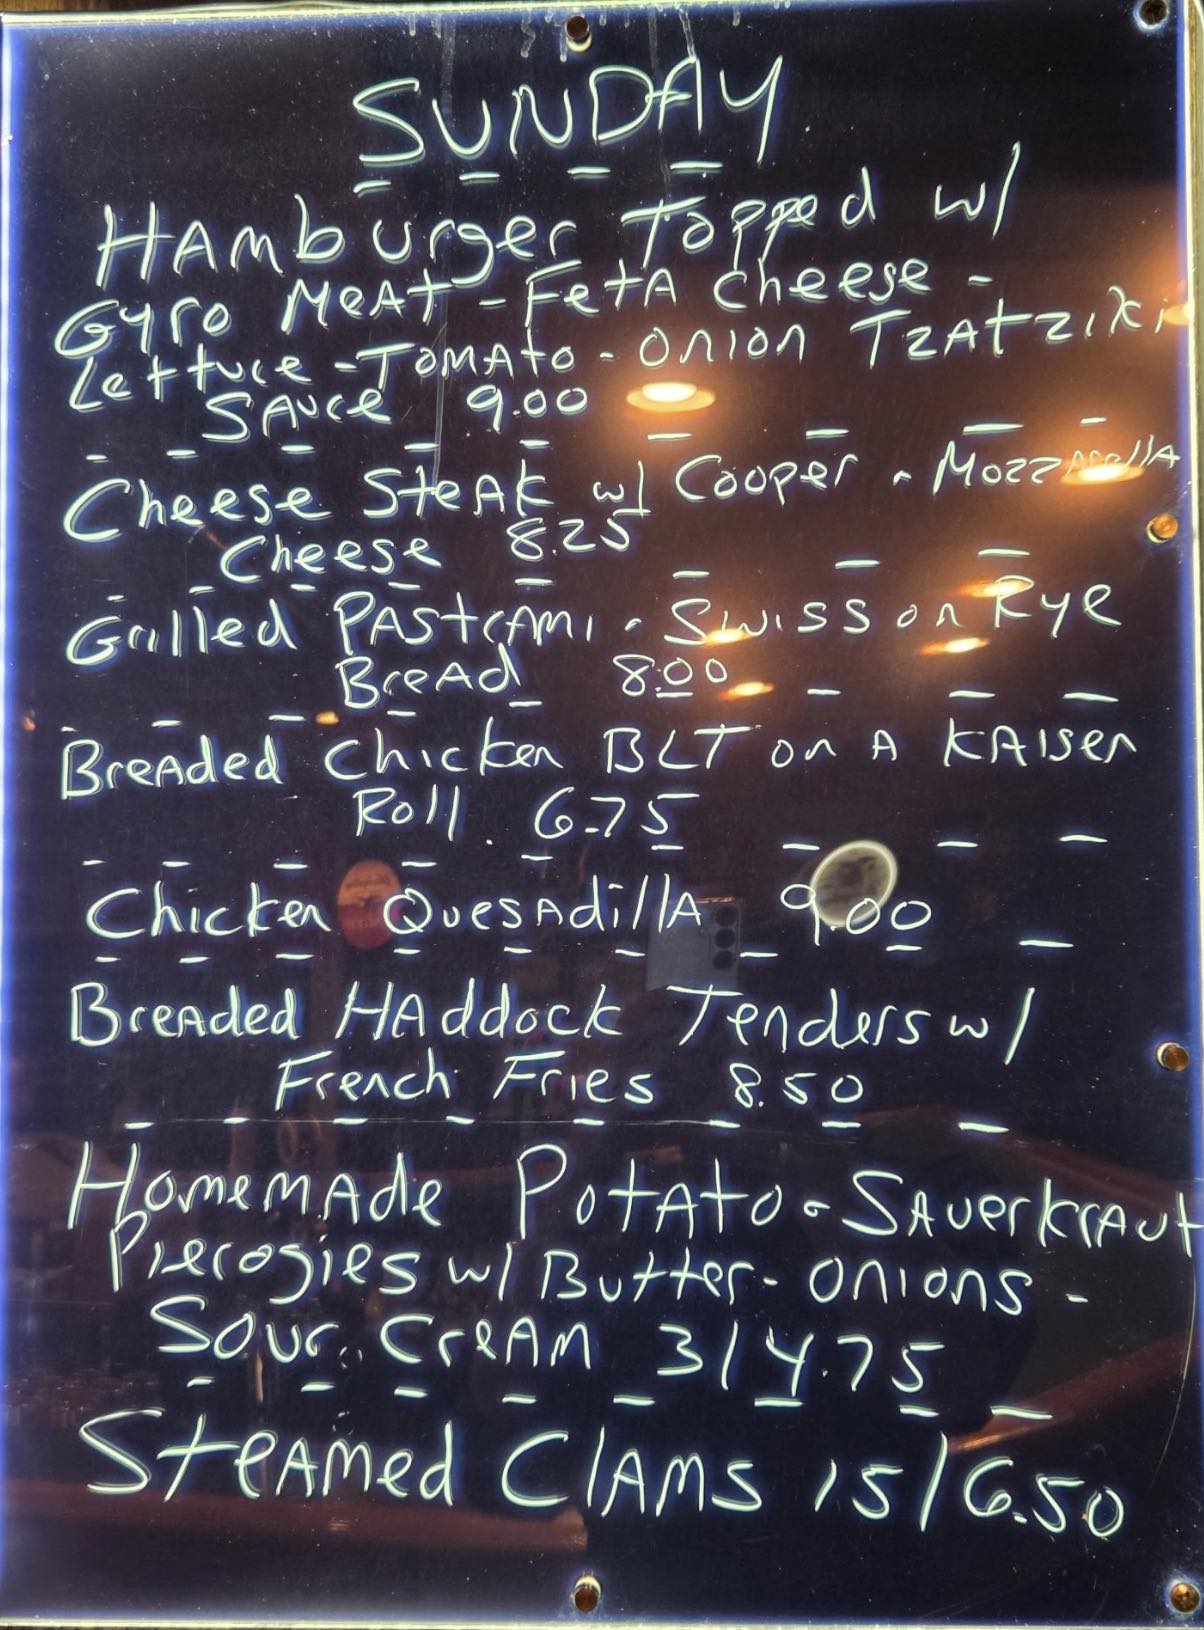 SUNDAY
Hamburger Topped w/
Gyro Meat - Feta Cheese -
Lettuce - Tomato - Onion Tzatziki
Sauce 9.00
Cheese Steak w/ Cooper - Mozzarella
Cheese 8.25
Grilled Pastrami - Swiss on Rye
Bread 8.00
Breaded Chicken BLT on A Kaiser
Roll 6.75
Chicken Quesadilla 9.00
Breaded Haddock Tenders w/
French Fries 8.50
Homemade Potato - Sauerkraut
Pierogies w/ Butter - Onions -
Sour Cream 3/4.75
Steamed Clams 15/6.50